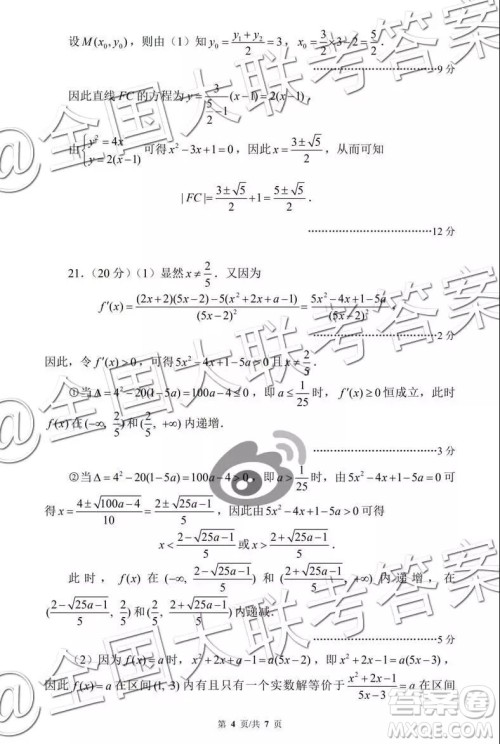 设 M(x₀, y₀)，则由（1）知 (y₁+y₂)/2 = 3，x₀ = 3/2 × 3 − 2 = 5/2．
9 分
因此直线 FC 的方程为 y = 3/(5/2 − 1) (x−1) = 2(x−1)，
由 { y² = 4x, y = 2(x−1) 可得 x² − 3x + 1 = 0，因此 x = (3±√5)/2，从而可知
|FC| = (3±√5)/2 + 1 = (5±√5)/2．
12 分
21．（20 分）（1）显然 x ≠ 2/5．又因为
f′(x) = ((2x+2)(5x−2) − 5(x²+2x+a−1))/(5x−2)² = (5x²−4x+1−5a)/(5x−2)²．
2 分
因此，令 f′(x) > 0，可得 5x²−4x+1−5a > 0 且 x ≠ 2/5．
①当 Δ = 4² − 20(1−5a) ≤ 0，即 a ≤ 1/25 时，f′(x) ≥ 0 恒成立，此时
f(x) 在 (−∞, 2/5)，(2/5, +∞) 内递增．
3 分
②当 Δ = 4² − 20(1−5a) > 0，即 a > 1/25 时，由 5x²−4x+1−5a = 0 可
得 x = (4±√(100a−4))/10 = (2±√(25a−1))/5，因此由 5x²−4x+1−5a > 0 可得
x < (2−√(25a−1))/5 或 x > (2+√(25a−1))/5．
此时，f(x) 在 (−∞, (2−√(25a−1))/5)，((2+√(25a−1))/5, +∞) 内递增，在
((2−√(25a−1))/5, 2/5)，(2/5, (2+√(25a−1))/5) 内递减．
5 分
（2）因为 f(x) = a 时，x²+2x+a−1 = a(5x−2)，即 x²+2x−1 = a(5x−3)，
因此 f(x) = a 在区间 (1, 3) 内有且只有一个实数解等价于 (x²+2x−1)/(5x−3) = a 在区间
第 4 页/共 7 页
@全国大联考答案
@全国大联考答案
@全国大联考答案